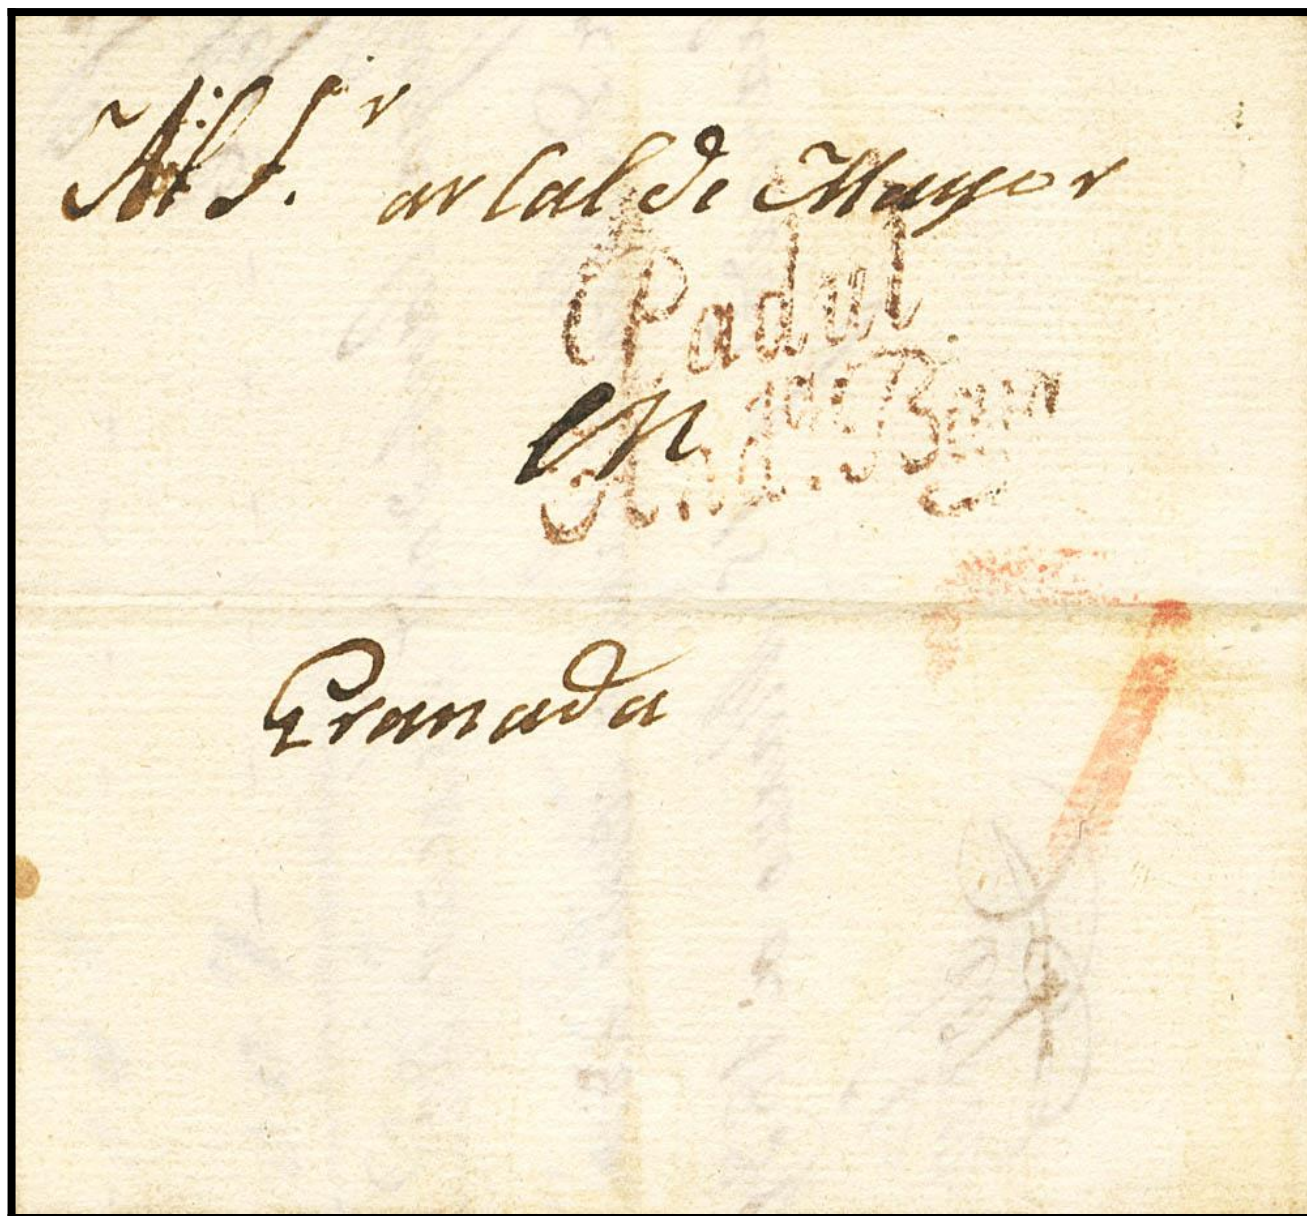 Al S.r arcalde Mayor
Padul
en
And.a Baxa
Granada